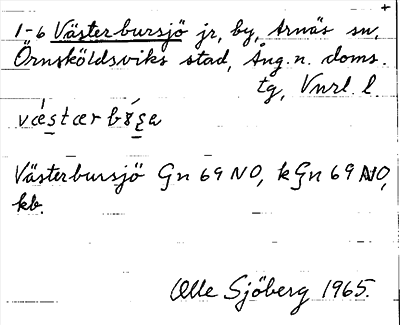 1-6 Västerbursjö jr, by, Arnäs sn,
Örnsköldsviks stad, Ång. n. doms.
tg, Vnrl. l
Västerbursjö Gn 69 NO, k Gn 69 NO,
kb.
Olle Sjöberg 1965.